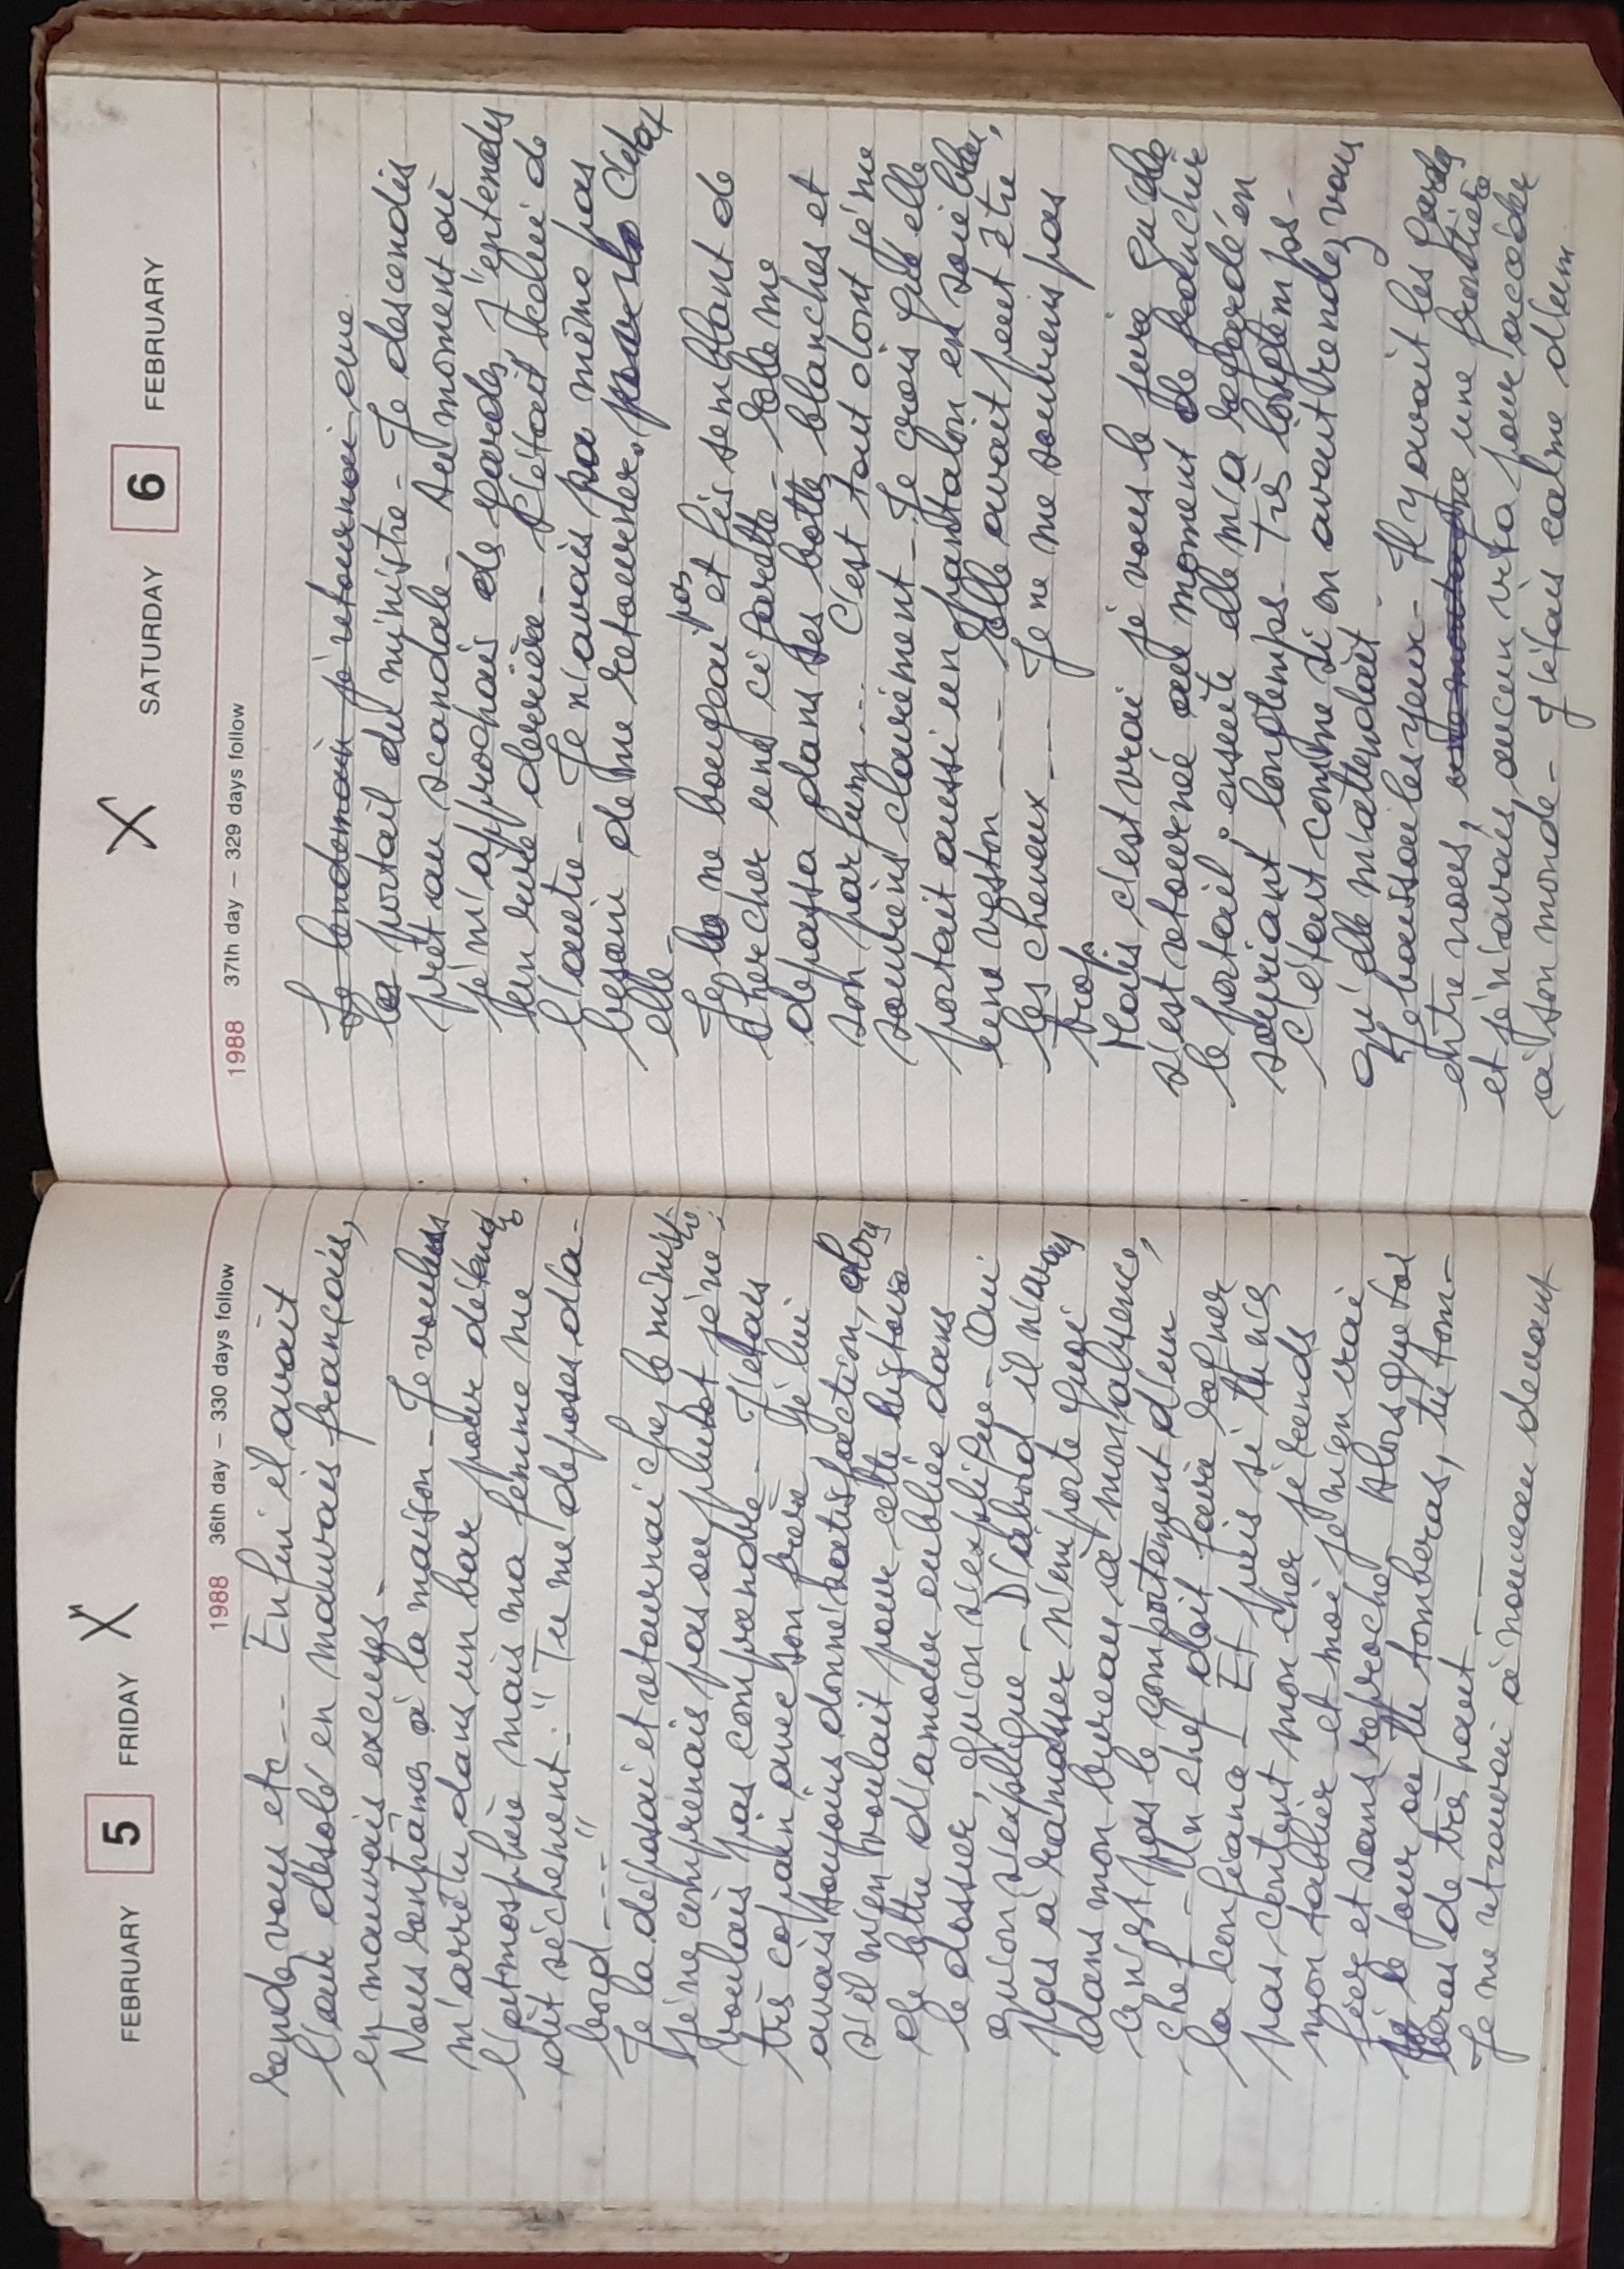 FEBRUARY 5 FRIDAY X
1988 36th day – 330 days follow
rendez vous etc -- Enfin il avait
l'air désolé en mauvais français,
en mauvais excuses -
Nous rentrâmes à la maison - Je voulus
m'arrêter dans un bar pour détendre
l'atmosphère mais ma femme me
dit sèchement : " Tu me déposes d'a-
bord ---- "
Je la déposai et retournai chez le ministre
Je ne comprenais pas ou plutôt je ne
voulais pas comprendre - J'étais
très copain avec son frère - Je lui
avais toujours donné satisfaction, alors
s'il m'en voulait pour cette histoire
de lettre d'amour oubliée dans
le dossier, qu'on s'explique - Oui
qu'on s'explique - D'abord il n'avait
pas à ramasser n'importe quoi
dans mon bureau à mon absence,
ce n'est pas le comportement d'un
chef - Un chef doit faire régner
la confiance - Et puis si tu n'es
pas content mon cher je rends
mon tablier et moi je m'en irai
fier et sans reproche Alors que toi
le jour où tu tomberas, tu tom-
beras de très haut ---
Je me retrouvai à nouveau devant
X
SATURDAY 6 FEBRUARY
1988 37th day – 329 days follow
Le lendemain je retournai une
le portail du ministre - Je descendis
prêt au scandale - Au moment où
je m'approchais des gardes j'entendis
un rire derrière - C'était celui de
l'autre - Je n'avais pas même pas
besoin de me retourner, pour c'était
elle -
Je ne bougeai pas et fis semblant de
chercher une cigarette - Elle me
dépassa dans ses botte blanches et
son parfum ... C'est tout dont je me
souviens clairement - Je crois qu'elle
portait aussi un pantalon en soie bleu,
une veston ---- Elle avait peut être
les cheveux ---- Je ne me souviens pas
trop
Mais c'est vrai je vous le jure qu'elle
s'est retournée au moment de franchir
le portail, ensuite elle m'a regardé en
souriant longtemps - Très longtemps -
C'était comme si on avait rendez vous
qu'elle m'attendait -
Je baissai les yeux - Il y avait les gardes
entre nous, une frontière
et je n'avais aucun visa pour accéder
à son monde - J'étais calme d'un